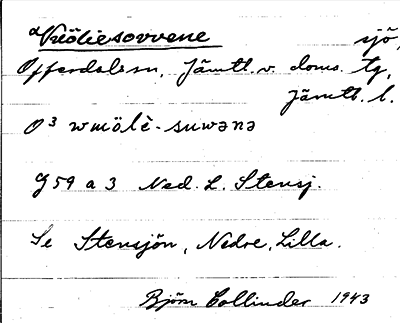 Vuöliesovvene sjö,
Offerdals sn, Jämtl. v. doms. tg,
Jämtl. l.
O³ wmölè-suwənə
G 59 a 3 Ned. L. Stensj.
Se Stensjön, Nedre, Lilla.
Björn Collinder 1943